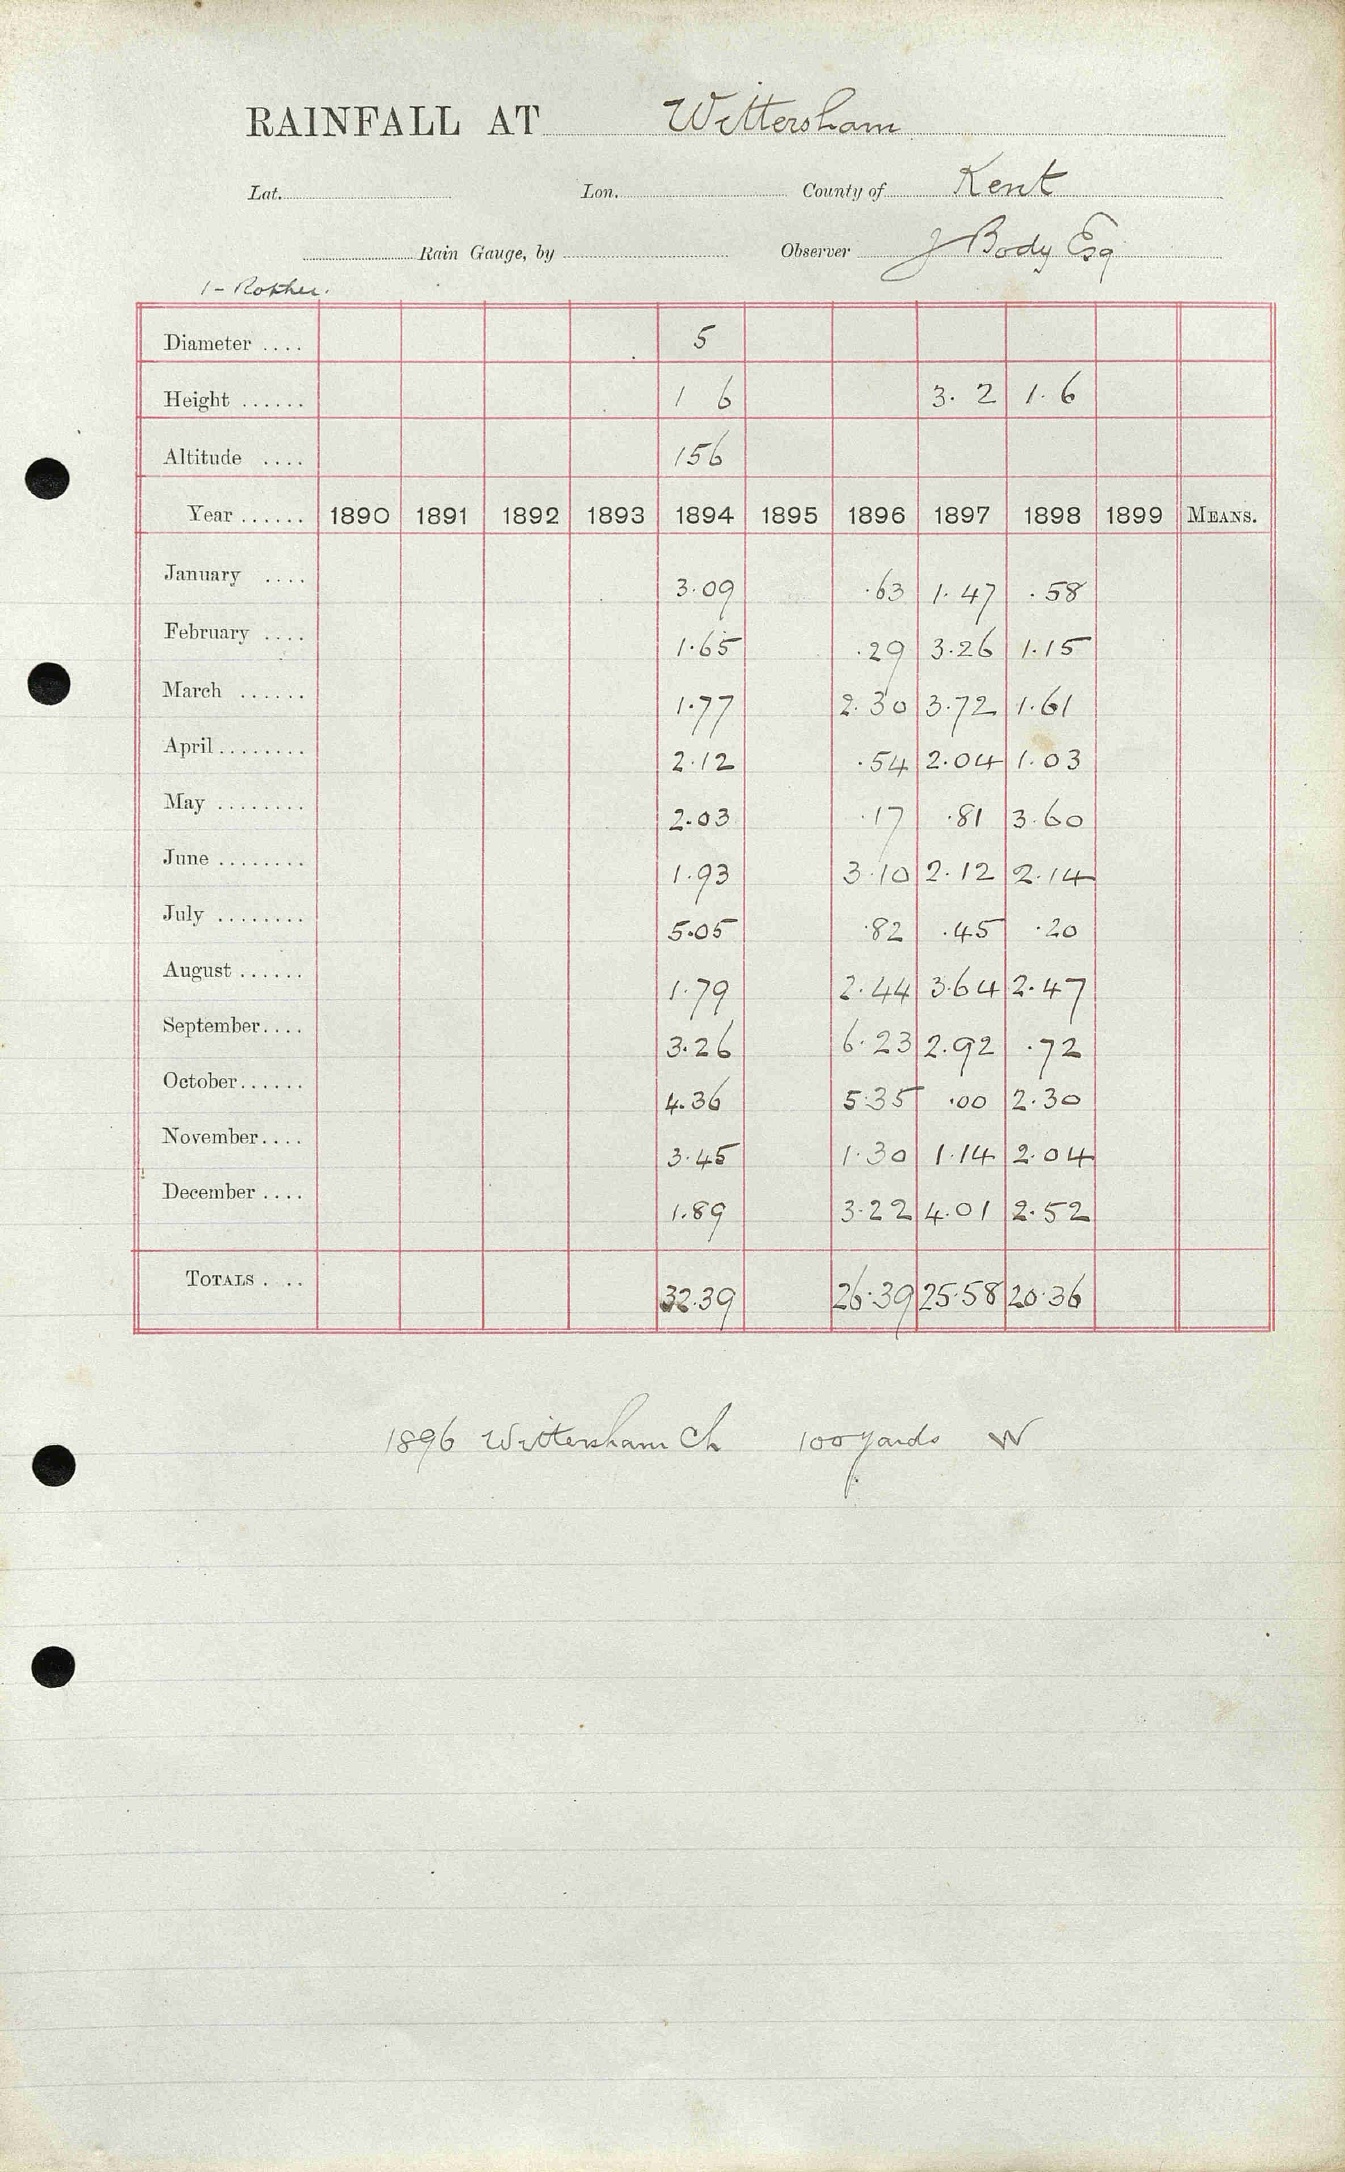 RAINFALL AT Wittersham
Lat. Lon. County of Kent
Rain Gauge, by Observer J Body Esq
1 - Rother.
Diameter .... 5
Height ...... 1 6 3. 2 1. 6
Altitude .... 156
Year ...... 1890 1891 1892 1893 1894 1895 1896 1897 1898 1899 MEANS.
January .... 3.09 .63 1.47 .58
February .... 1.65 .29 3.26 1.15
March ...... 1.77 2.30 3.72 1.61
April ........ 2.12 .54 2.04 1.03
May ........ 2.03 .17 .81 3.60
June ........ 1.93 3.10 2.12 2.14
July ........ 5.05 .82 .45 .20
August ...... 1.79 2.44 3.64 2.47
September .... 3.26 6.23 2.92 .72
October ...... 4.36 5.35 .00 2.30
November .... 3.45 1.30 1.14 2.04
December .... 1.89 3.22 4.01 2.52
TOTALS . .. 32.39 26.39 25.58 20.36
1896 Wittersham Ch 100 yards W